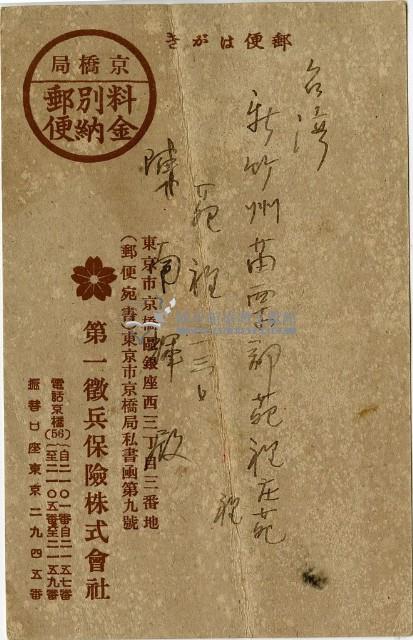 郵便はがき
京橋局
料金別納郵便
台湾
新竹州苗栗郡苑裡庄苑
裡
苑裡三一
陳南輝殿
東京市京橋區銀座西三丁目三番地
(郵便宛書)東京市京橋局私書函第九號
第一徵兵保險株式會社
電話京橋(56){自二一〇一番自二一五七番
至二一〇五番至二一五九番
振替口座東京二九四五番